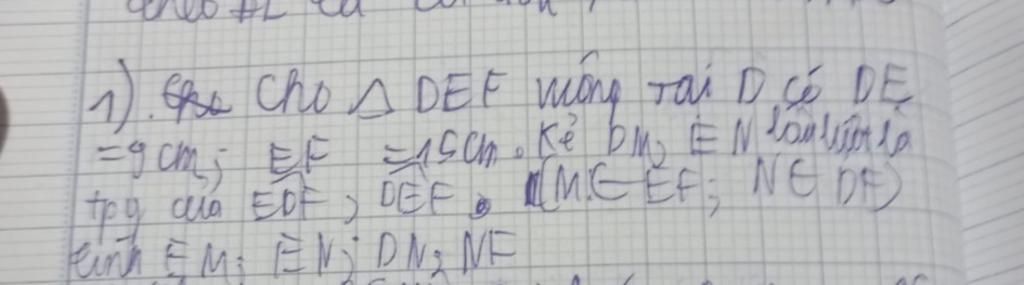 1). Cho △ DEF vuông tại D có DE
= 9 cm; EF = 15 cm. Kẻ DM, EN lần lượt là
tpg của EDF, DEF. (M ∈ EF; N ∈ DF)
tính EM; EN; DN; NF